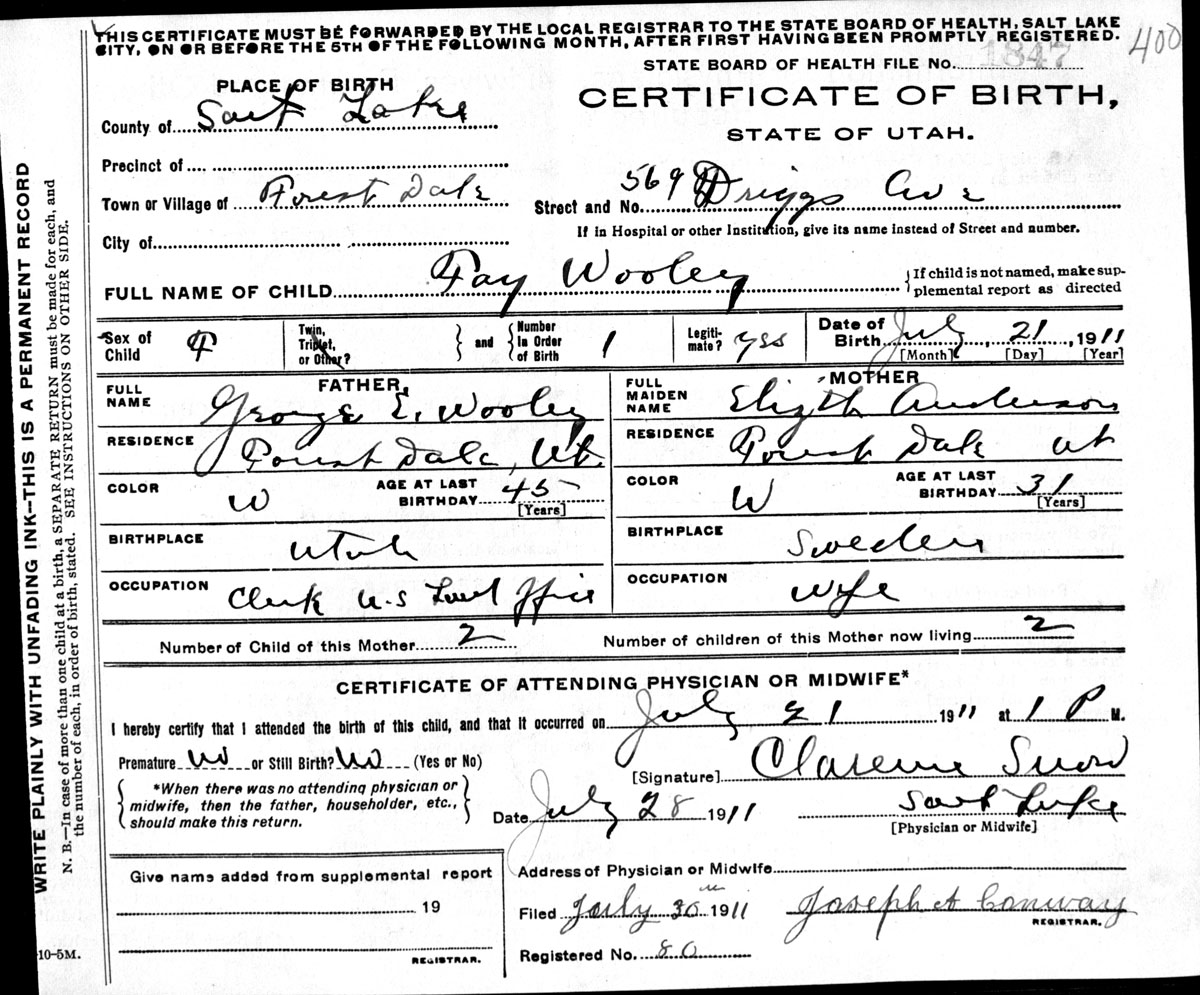 THIS CERTIFICATE MUST BE FORWARDED BY THE LOCAL REGISTRAR TO THE STATE BOARD OF HEALTH, SALT LAKE
CITY, ON OR BEFORE THE 5TH OF THE FOLLOWING MONTH, AFTER FIRST HAVING BEEN PROMPTLY REGISTERED.
400
STATE BOARD OF HEALTH FILE No. 1847
PLACE OF BIRTH
CERTIFICATE OF BIRTH,
STATE OF UTAH.
County of Salt Lake
Precinct of
Town or Village of Forest Dale
Street and No. 569 Driggs Ave
City of
If in Hospital or other Institution, give its name instead of Street and number.
FULL NAME OF CHILD Fay Wooley
If child is not named, make sup-
plemental report as directed
Sex of Child F
Twin, Triplet, or Other? and Number In Order of Birth 1
Legiti-mate? yes
Date of Birth July 21, 1911
[Month] [Day] [Year]
FATHER,
FULL NAME George E. Wooley
RESIDENCE Forest Dale, Ut.
COLOR W AGE AT LAST BIRTHDAY 45 [Years]
BIRTHPLACE Utah
OCCUPATION Clerk U.S Land Office
MOTHER
FULL MAIDEN NAME Elizth Anderson
RESIDENCE Forest Dale Ut
COLOR W AGE AT LAST BIRTHDAY 31 [Years]
BIRTHPLACE Sweden
OCCUPATION Wife
Number of Child of this Mother 2 Number of children of this Mother now living 2
CERTIFICATE OF ATTENDING PHYSICIAN OR MIDWIFE*
I hereby certify that I attended the birth of this child, and that it occurred on July 21 1911 at 1 P M.
Premature No or Still Birth? No (Yes or No)
[Signature] Clarence Snow
*When there was no attending physician or
midwife, then the father, householder, etc.,
should make this return.
Date July 28 1911 Salt Lake
[Physician or Midwife]
Give name added from supplemental report
19
REGISTRAR.
Address of Physician or Midwife
Filed July 30 1911 Joseph A Conway
REGISTRAR.
Registered No. 80
WRITE PLAINLY WITH UNFADING INK—THIS IS A PERMANENT RECORD
N. B.—In case of more than one child at a birth, a SEPARATE RETURN must be made for each, and
the number of each, in order of birth, stated. SEE INSTRUCTIONS ON OTHER SIDE.
10-5M.